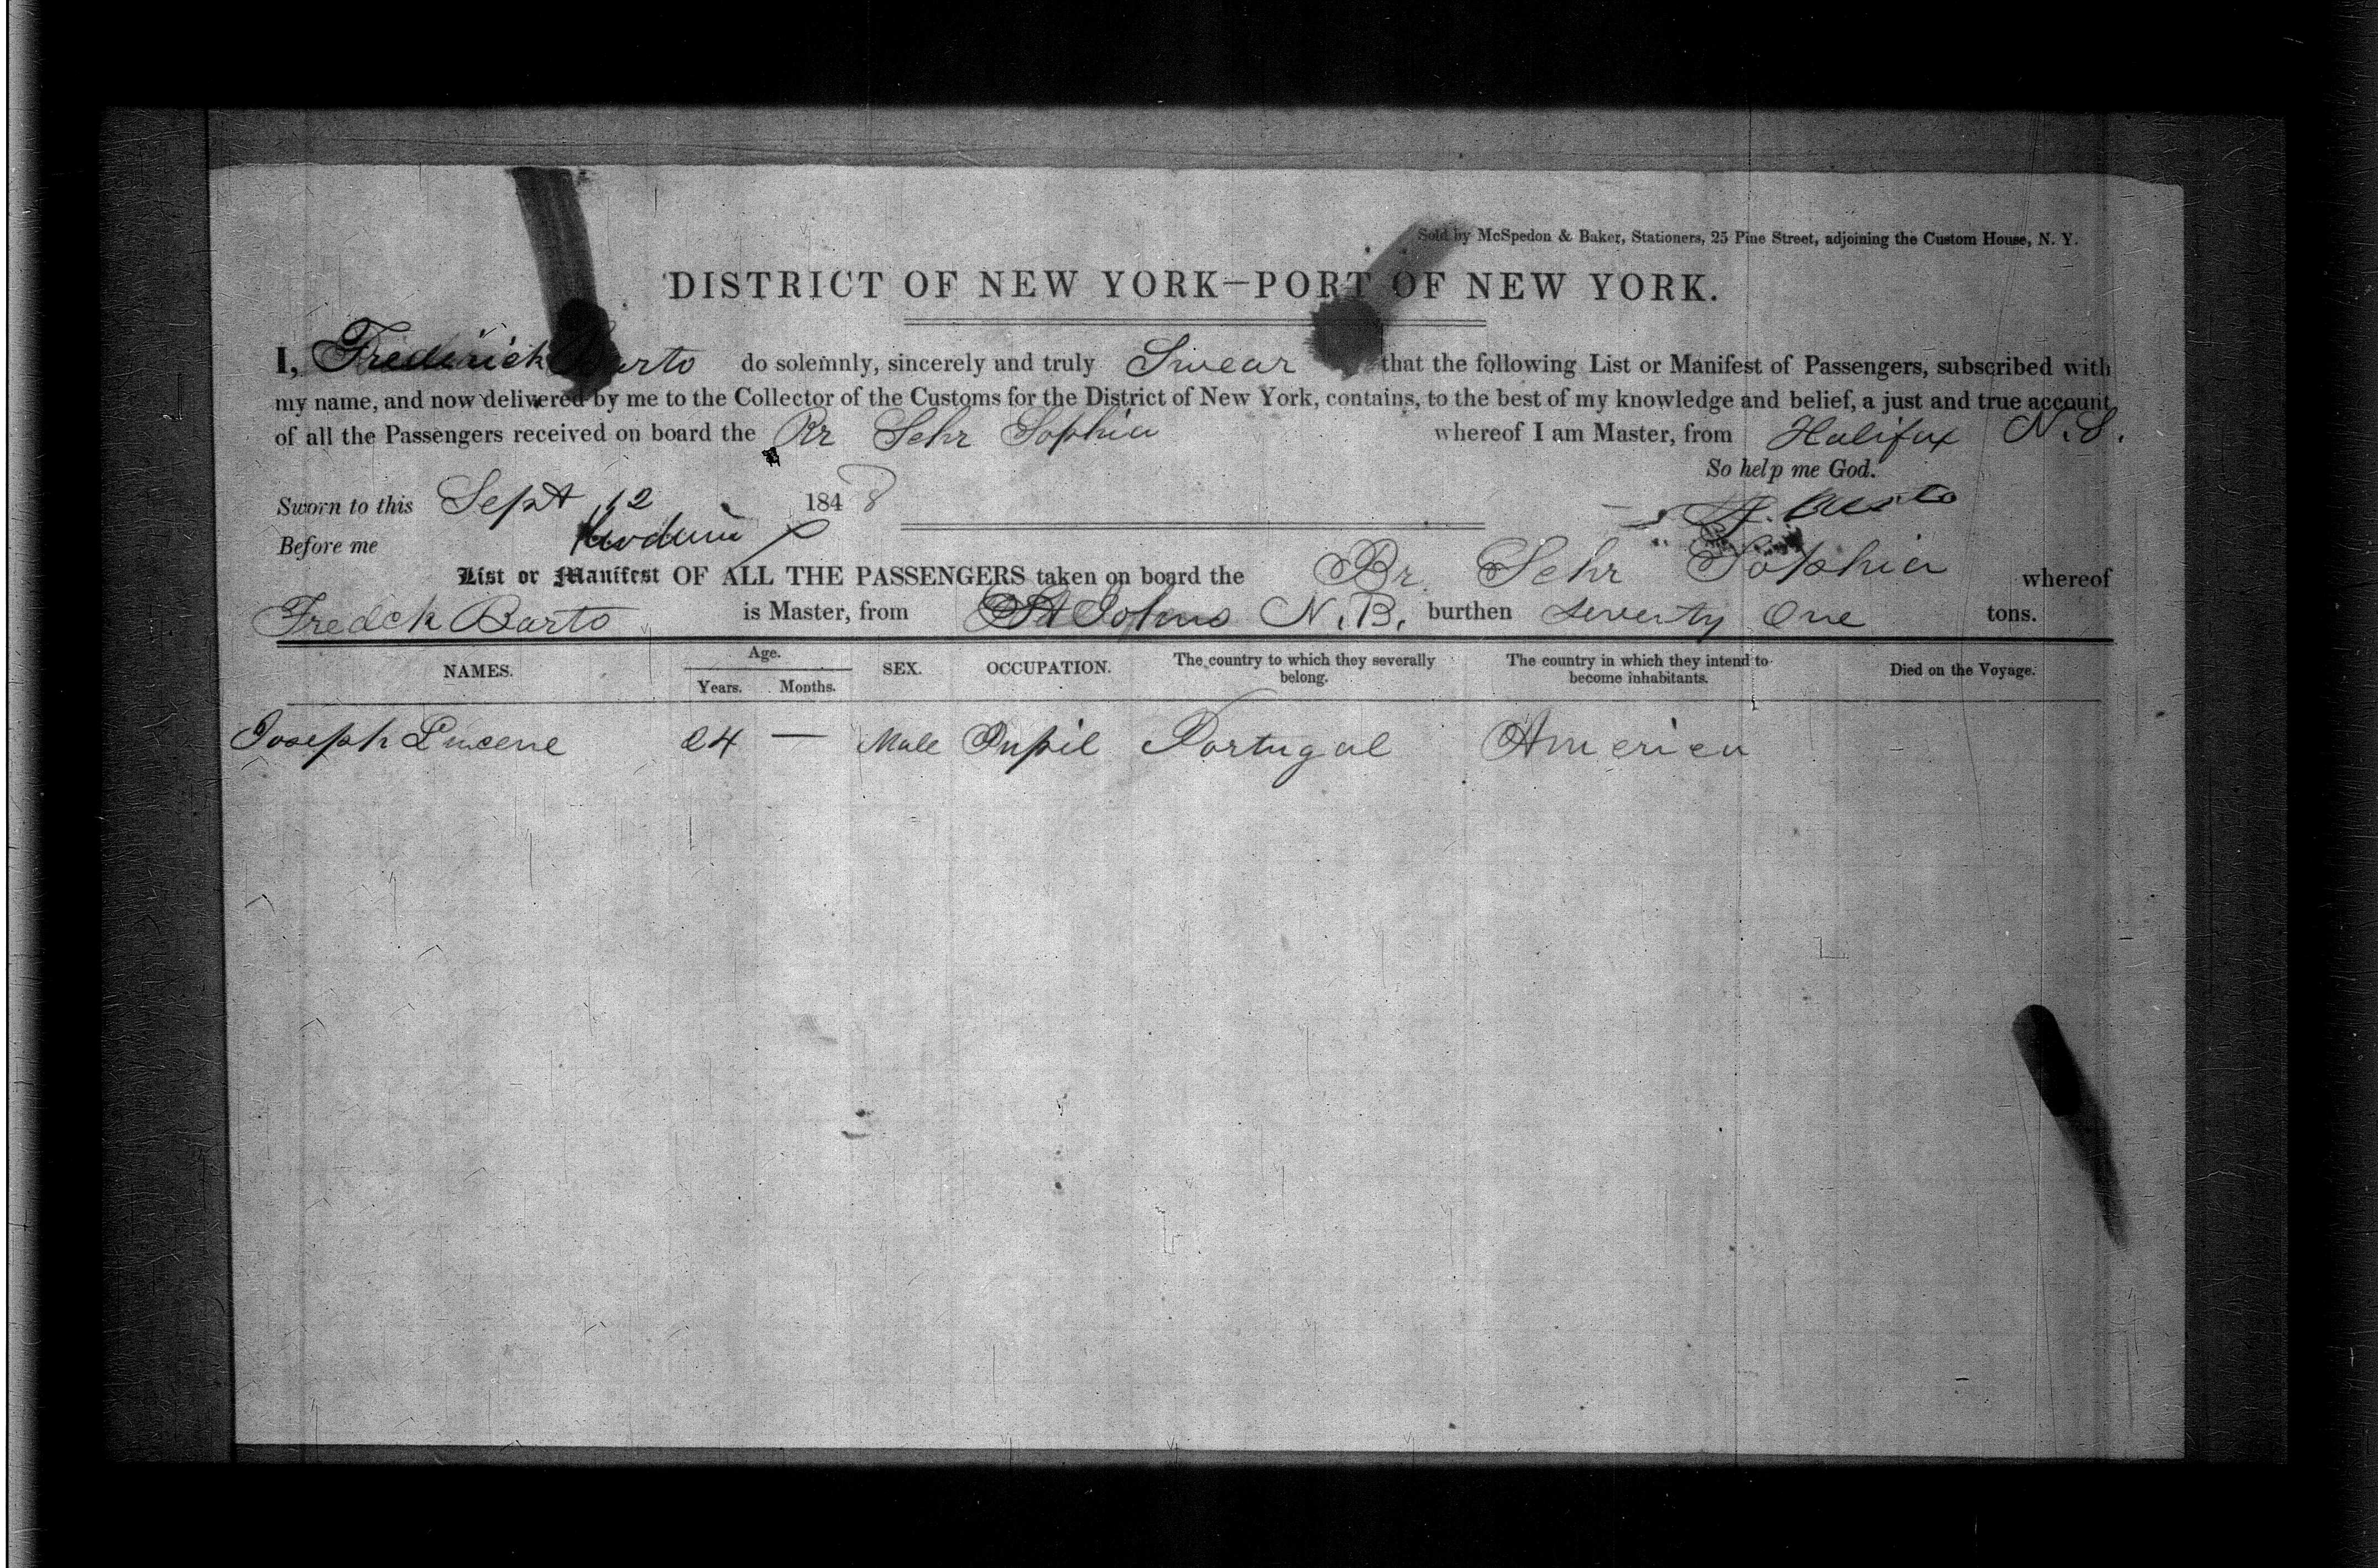 Sold by McSpedon & Baker, Stationers, 25 Pine Street, adjoining the Custom House, N. Y.
DISTRICT OF NEW YORK—PORT OF NEW YORK.
I, Frederick Barto do solemnly, sincerely and truly Swear that the following List or Manifest of Passengers, subscribed with
my name, and now delivered by me to the Collector of the Customs for the District of New York, contains, to the best of my knowledge and belief, a just and true account
of all the Passengers received on board the Br Schr Sophia whereof I am Master, from Halifax N.S.
So help me God.
Sworn to this Sept 12 1848
F. Barto
Before me
List or Manifest OF ALL THE PASSENGERS taken on board the Br. Schr Sophia whereof
Fredck Barto is Master, from St Johns N.B. burthen Seventy One tons.
NAMES. Age. Years. Months. SEX. OCCUPATION. The country to which they severally belong. The country in which they intend to become inhabitants. Died on the Voyage.
Joseph Lucene 24 — Male Pupil Portugal America